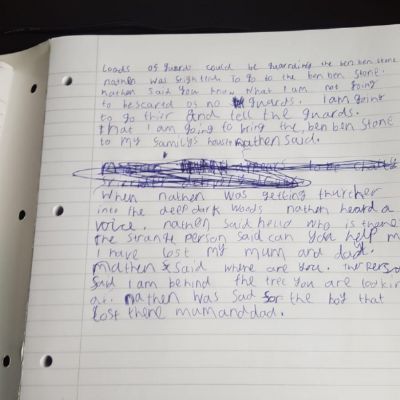 Loads of guards could be guarding the ben ben stone
nathen was frightend To go to the ben ben stone.
nathen said you know what I am not going
to bescared os no guards. I am going
to go thir and tell the guards.
that I am going to bring the, ben ben stone
to my family's house nathen said.
When nathen was getting thurcher
into the deep dark woods nathen heard a
voice. nathen said hello who is there
the strange person said can you help m
I have lost my mum and dad.
nathen said where are you. The Person
said I am behind the tree you are lookin
at. nathen was sad for the boy that
lost there mum and dad.